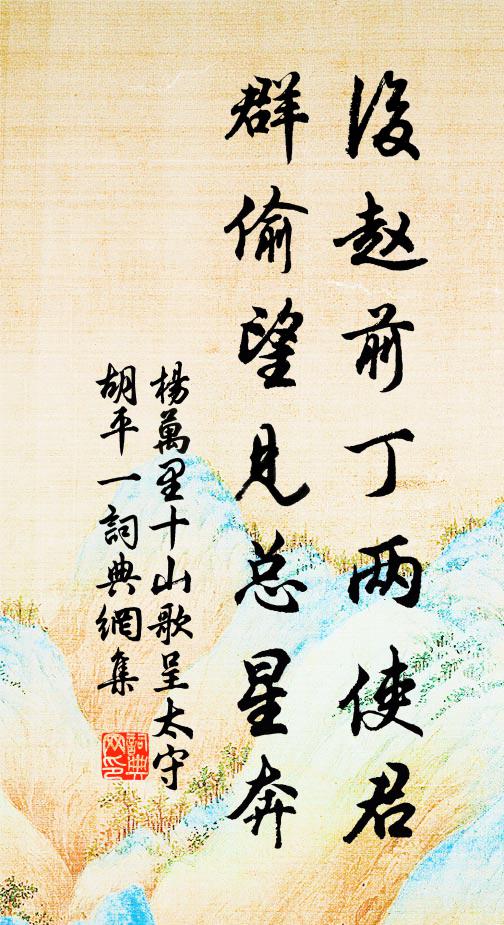 後赵前丁两使君
群偷望見总星奔
楊萬里十山歌呈太守
胡平一詞典網集
詞典网印